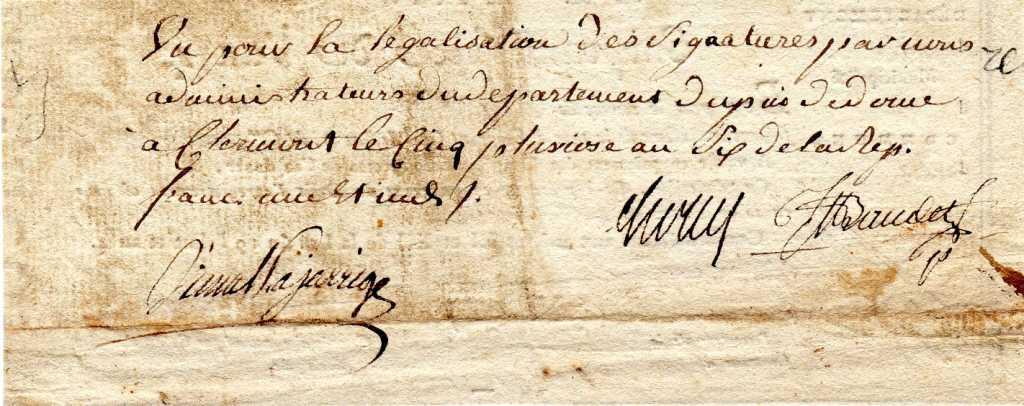 Vu pour la légalisation des Signatures par nous
administrateurs du departement du puis dedome
à Clermont le Cinq pluviose an Six de la Rep.
franc une et ind.